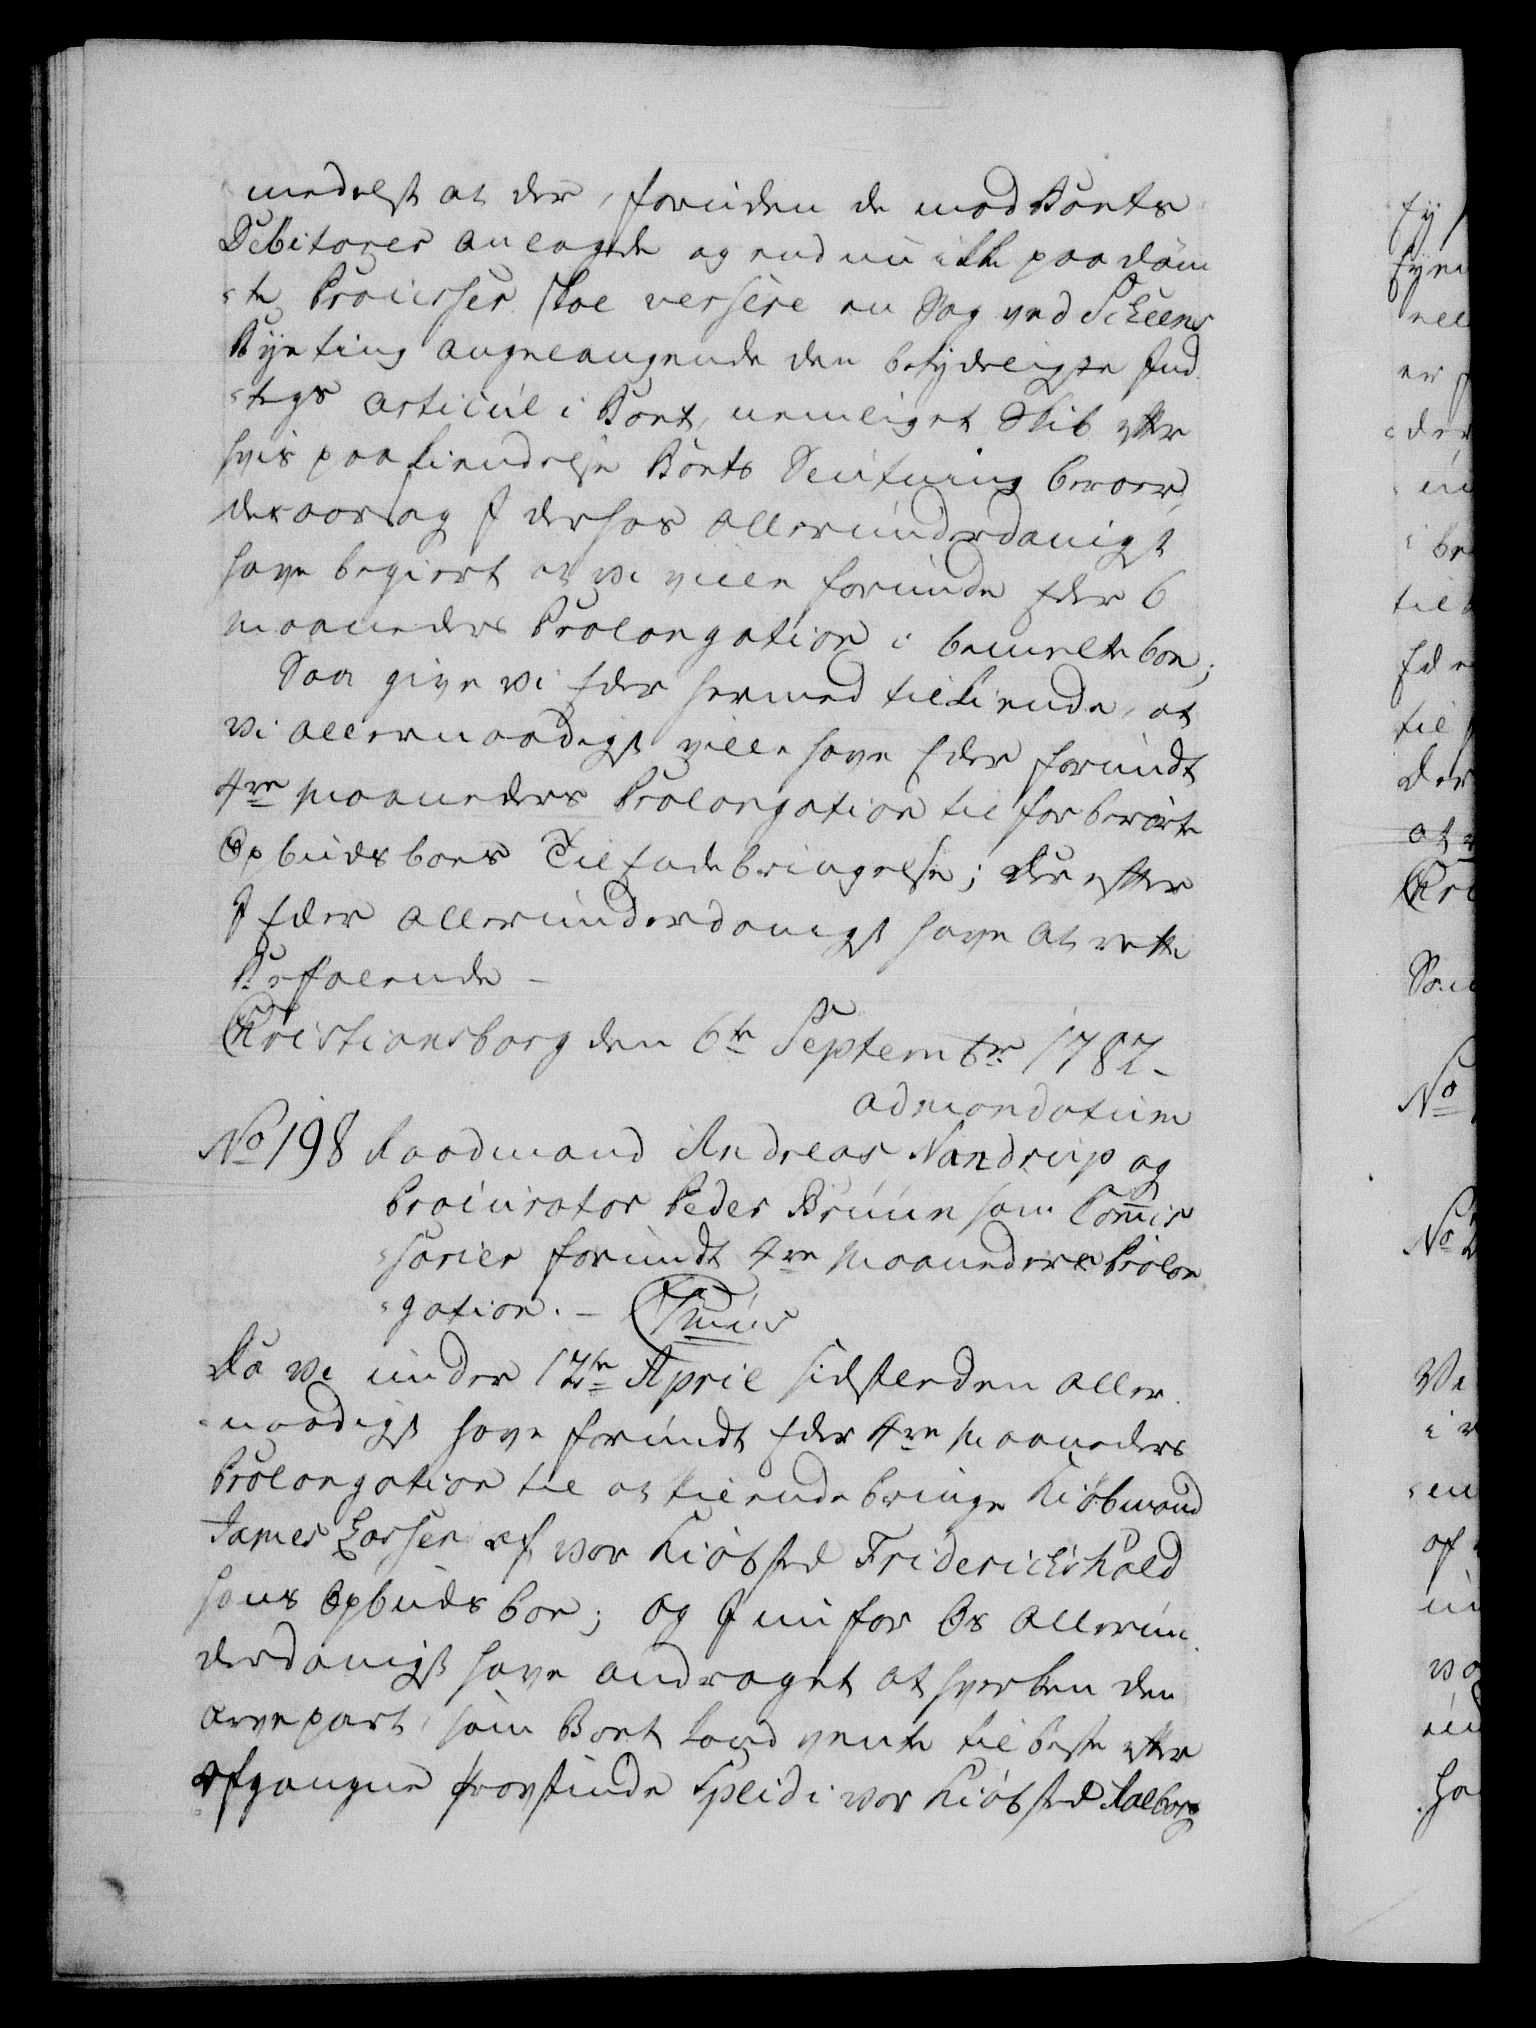 medelst at der, foruden de mod Boets
Debitorer anlagde og endnu ikke paadöm
-te Processer skal versere en Sag ved Scheens
Byeting angeaaugende den betydeligste Ind
-tegs Articul i Boet, nemliget Skib efter
hvis paakiendelse Boets Slutning beroer,
desaarsag I derhos allerunderdanigst
have begiert at vi ville forunde Eder 6
maaneders Prolongation i bemelte boe;
Saa give vi Eder hermed tilkiende, at
vi allernaadigst ville have Eder forundt
4re Maaneders Prolongation til forberörte
Opbudsboes Tilendebringelse; Derefter
I Eder allerunderdanigst have at rette
Befalende –
Christiansborg den 6te Septembr. 1782–
ad mandatum
No 198 Raadmand Andreas Nandrup og
Procurator Peder Bruun som Commis
-sarier forundt 4re Maaneders Prolon
-gation. –
Da vi under 12te April sidstleden aller
-naadigst have forundt Eder 4re Maaneders
Prolongation til at tilendebringe Kiöbmand
James Lasser af vor Kiöbsted Friderichshald
hans Opbuds boe; og I nu for Os allerun
derdanigst have andraget at hverken den
Arvepart, som Boet havd vente tilbeste efter
afgangne Provstinde Spleid i vor Kiöbsted Aalborg